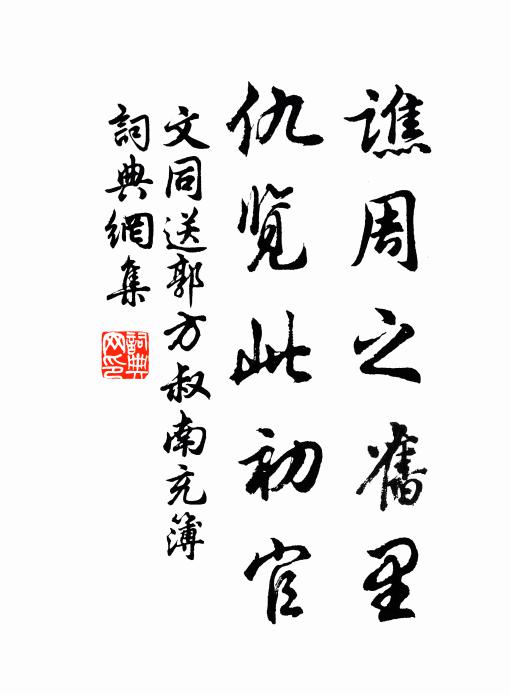 譙周之舊里
仇覽此初官
文同送郭方叔南充簿
詞典網集
詞典網印